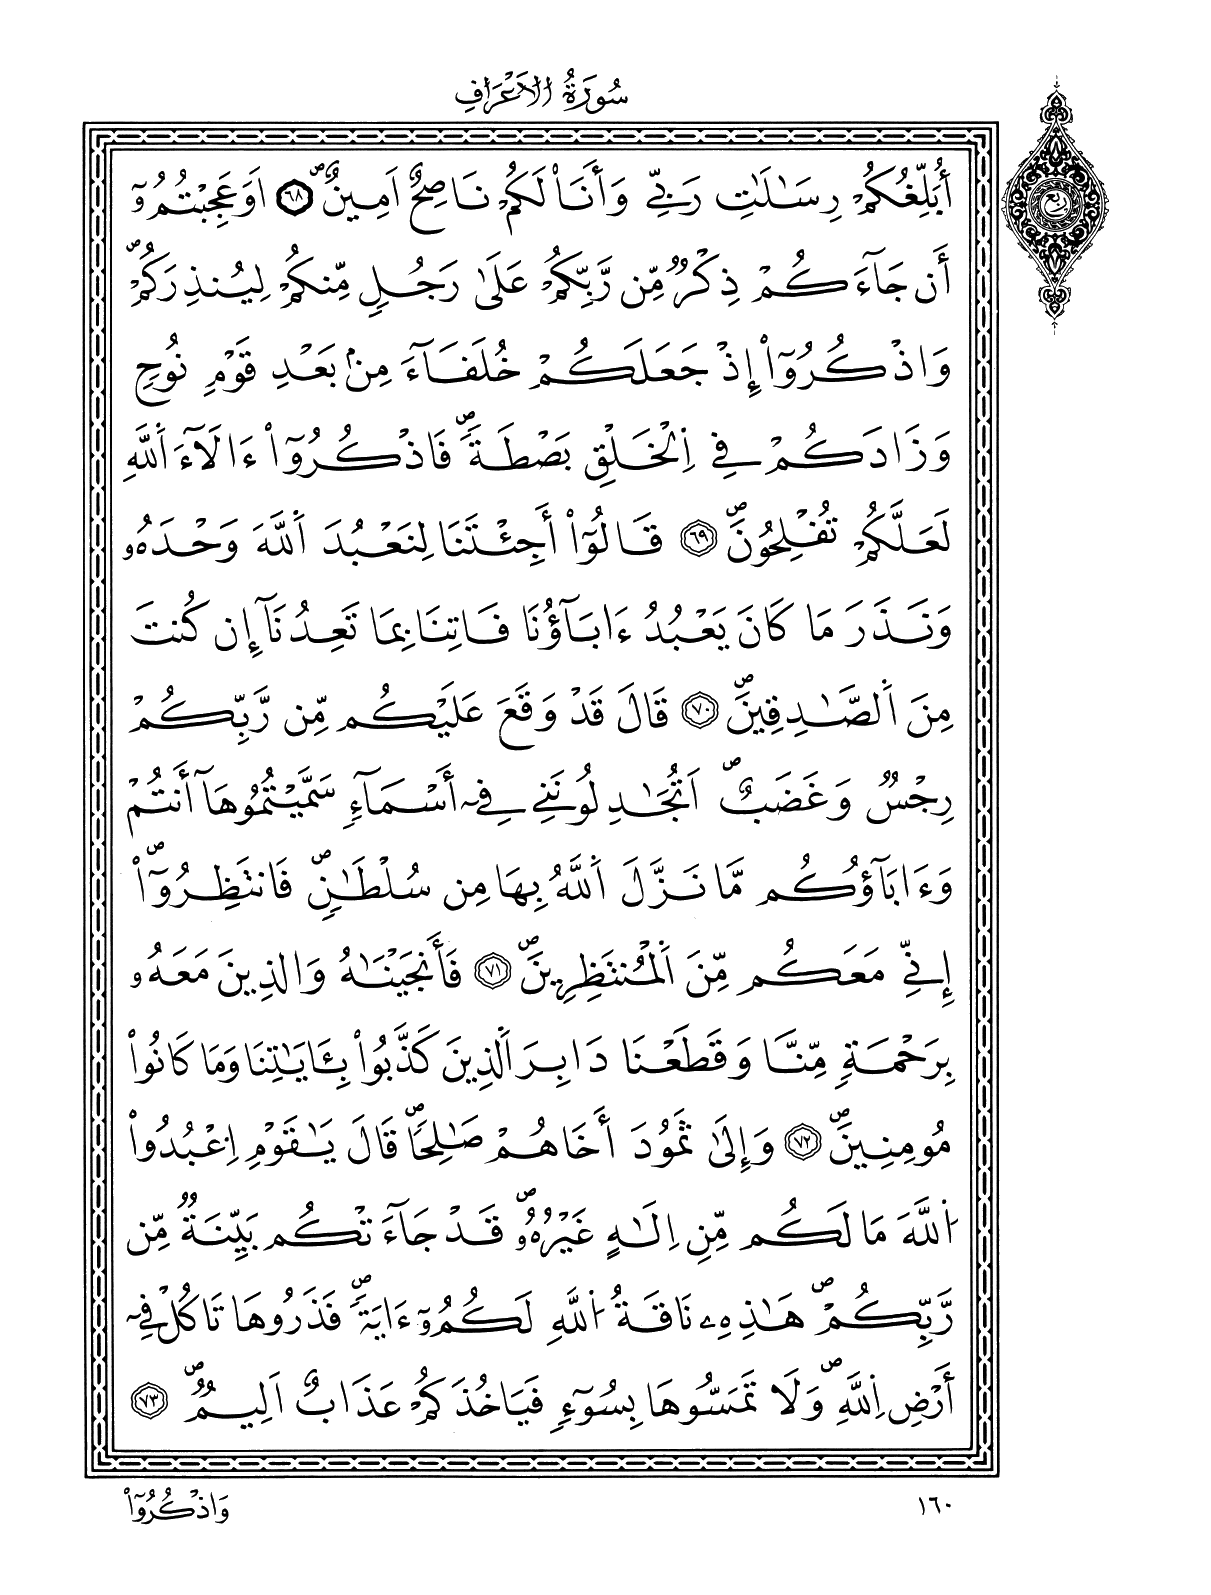 سُورَةُ الاَعْرَافِ
رُبُع
أُبَلِّغُكُمْ رِسَٰلَٰتِ رَبِّي وَأَنَا۠ لَكُمْ نَاصِحٌ اَمِينٌۖ ٦٨ اَوَعَجِبْتُمُۥٓ
أَن جَآءَكُمْ ذِكْرٌ مِّن رَّبِّكُمْ عَلَىٰ رَجُلٍ مِّنكُمْ لِيُنذِرَكُمْۖ
وَاذْكُرُوٓاْ إِذْ جَعَلَكُمْ خُلَفَآءَ مِنۢ بَعْدِ قَوْمِ نُوحٍ
وَزَادَكُمْ فِي اِ۬لْخَلْقِ بَصْطَةًۖ فَاذْكُرُوٓاْ ءَالَآءَ اَ۬للَّهِ
لَعَلَّكُمْ تُفْلِحُونَۖ ٦٩ قَالُوٓاْ أَجِئْتَنَا لِنَعْبُدَ اَ۬للَّهَ وَحْدَهُۥ
وَنَذَرَ مَا كَانَ يَعْبُدُ ءَابَآؤُنَا فَاتِنَا بِمَا تَعِدُنَآ إِن كُنتَ
مِنَ اَ۬لصَّٰدِقِينَۖ ٧٠ قَالَ قَدْ وَقَعَ عَلَيْكُم مِّن رَّبِّكُمْ
رِجْسٌ وَغَضَبٌۖ اَتُجَٰدِلُونَنِي فِےٓ أَسْمَآءٍ سَمَّيْتُمُوهَآ أَنتُمْ
وَءَابَآؤُكُم مَّا نَزَّلَ اَ۬للَّهُ بِهَا مِن سُلْطَٰنٍۖ فَانتَظِرُوٓاْۖ
إِنِّي مَعَكُم مِّنَ اَ۬لْمُنتَظِرِينَۖ ٧١ فَأَنجَيْنَٰهُ وَالذِينَ مَعَهُۥ
بِرَحْمَةٍ مِّنَّا وَقَطَعْنَا دَابِرَ اَ۬لذِينَ كَذَّبُواْ بِـَٔايَٰتِنَا وَمَا كَانُواْ
مُومِنِينَۖ ٧٢ وَإِلَىٰ ثَمُودَ أَخَاهُمْ صَٰلِحًاۖ قَالَ يَٰقَوْمِ اِ۟عْبُدُواْ
اُ۬للَّهَ مَا لَكُم مِّنِ اِلَٰهٍ غَيْرُهُۥۖ قَدْ جَآءَتْكُم بَيِّنَةٌ مِّن
رَّبِّكُمْۖ هَٰذِهِۦ نَاقَةُ اُ۬للَّهِ لَكُمُۥٓ ءَايَةًۖ فَذَرُوهَا تَاكُلْ فِےٓ
أَرْضِ اِ۬للَّهِۖ وَلَا تَمَسُّوهَا بِسُوٓءٍ فَيَاخُذَكُمْ عَذَابٌ اَلِيمٌۖ ٧٣
وَاذْكُرُوٓاْ
١٦٠